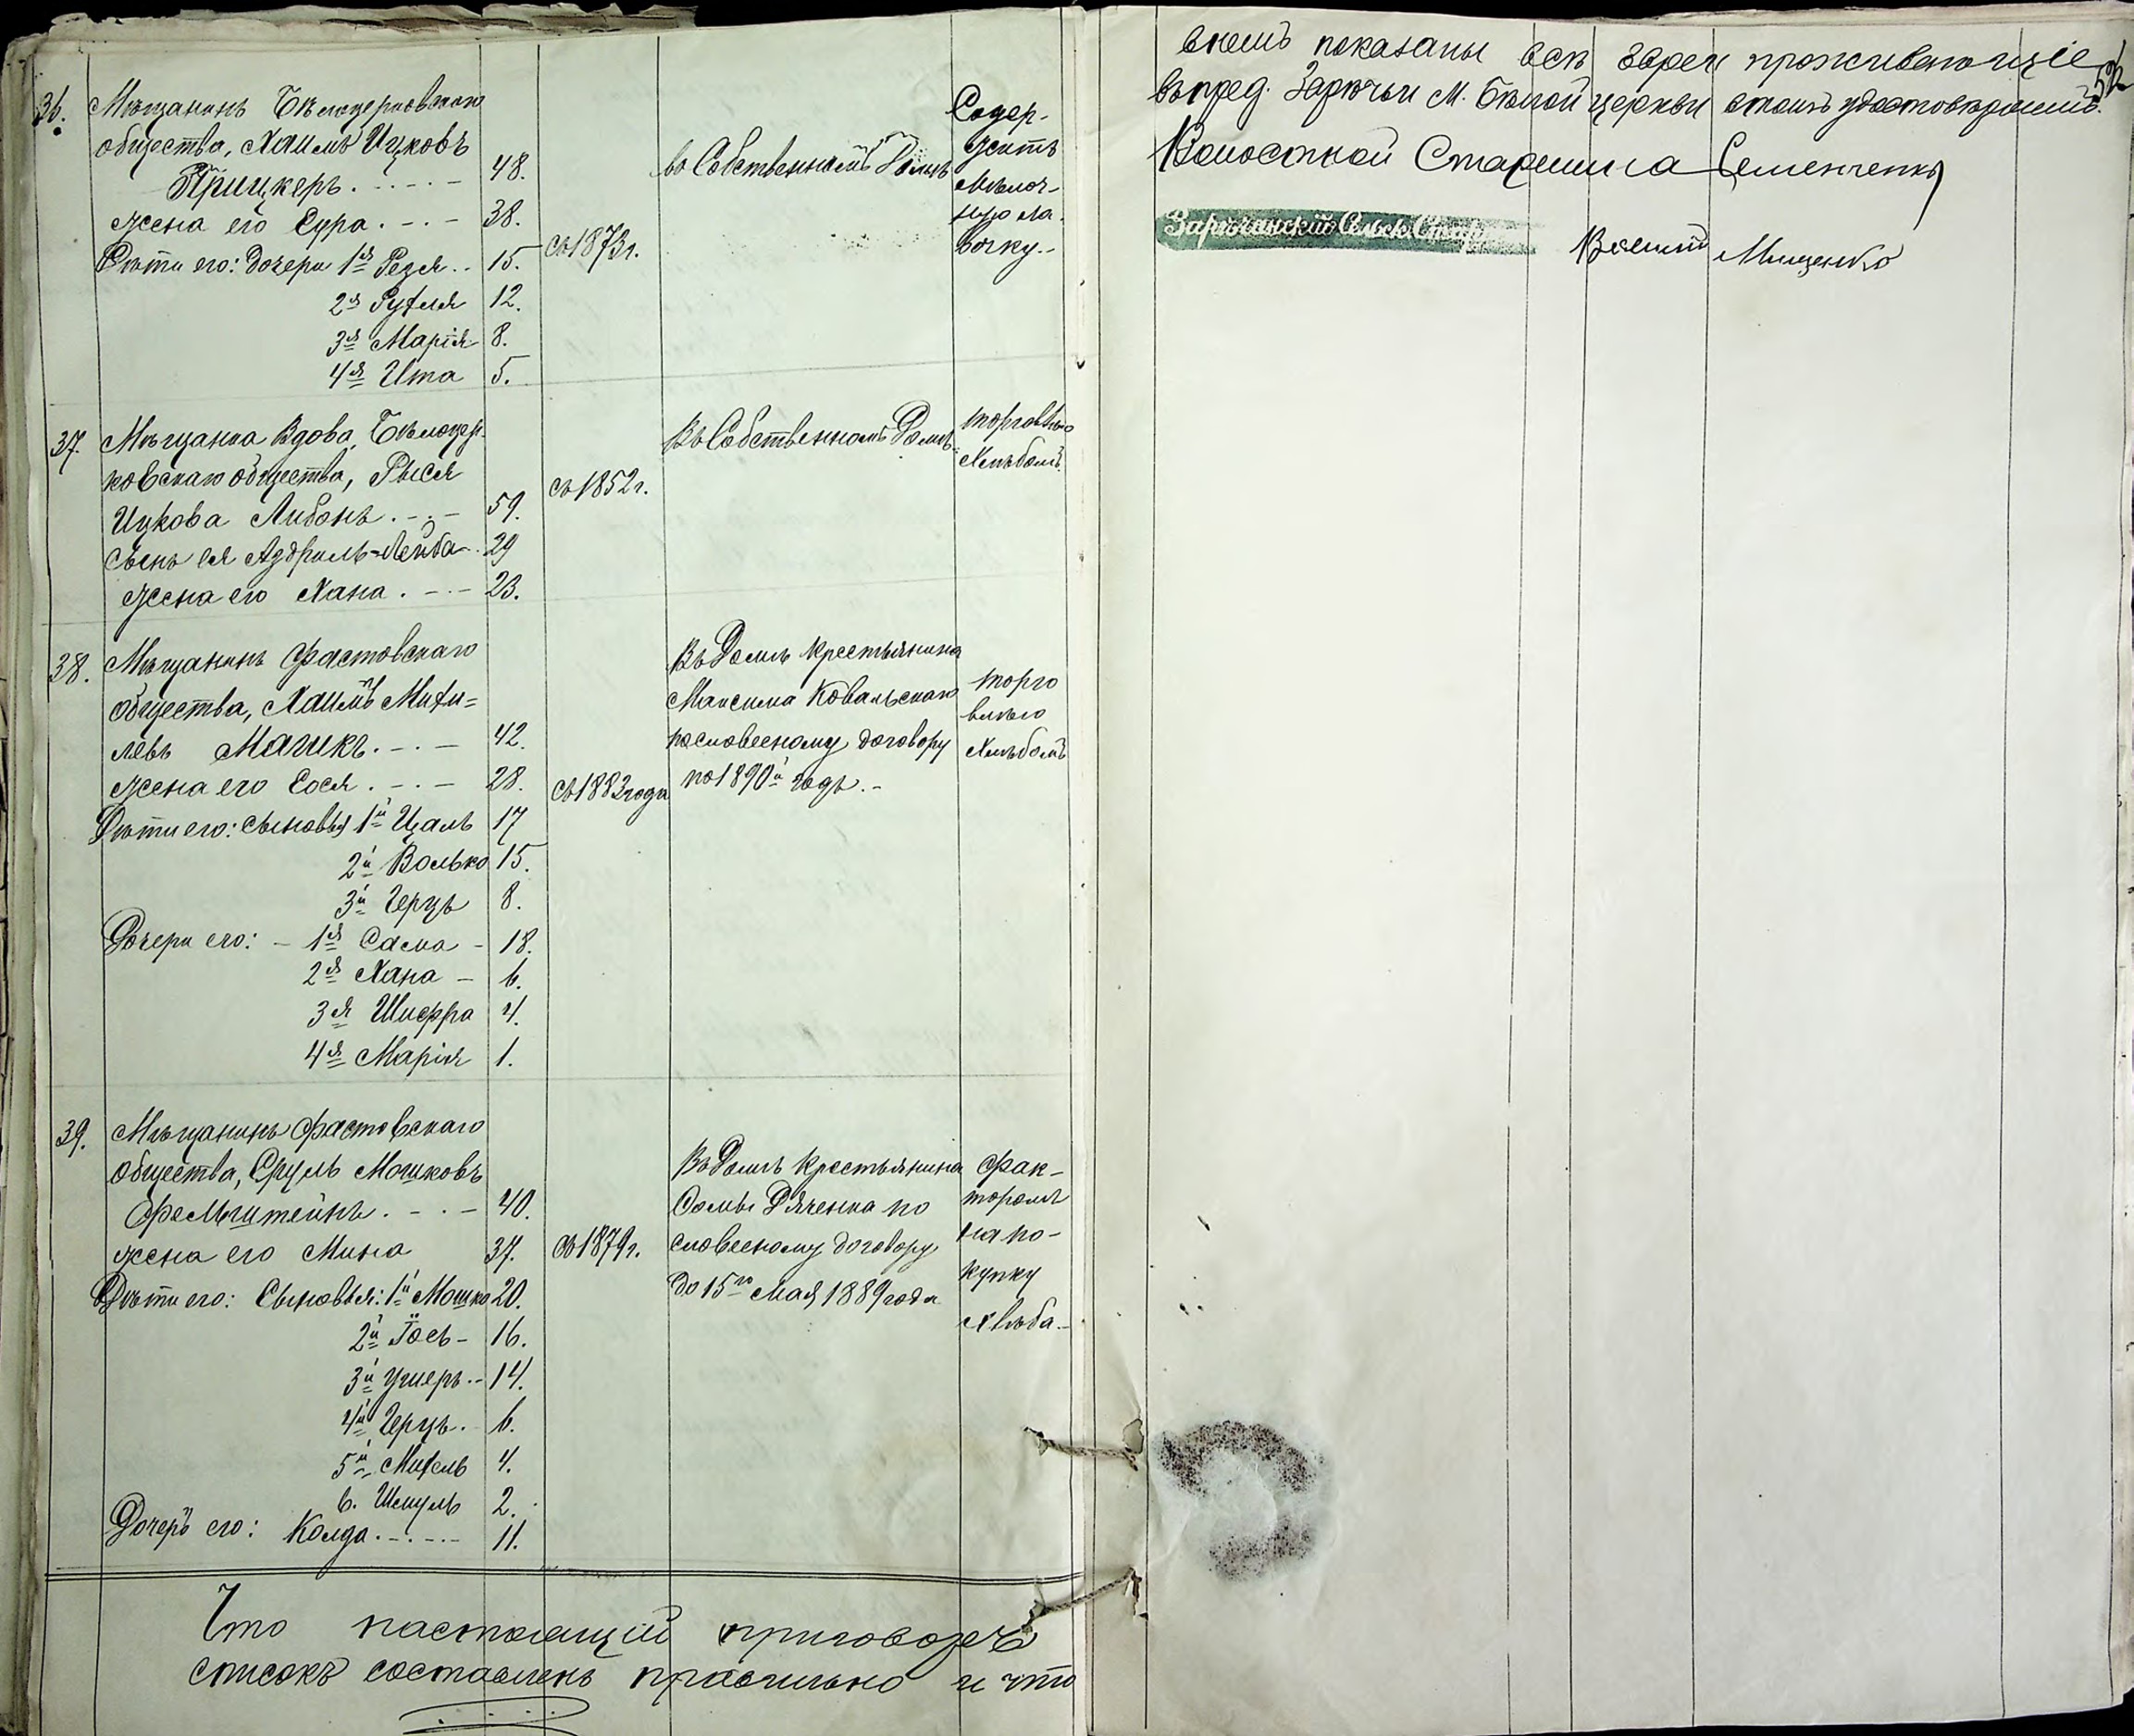 36. Мѣщанинъ Бѣлоцерковскаго
общества, Хаимъ Ицковъ
Прицкеръ. 48.
жена его Сура. 38.
Дѣти его: дочери 1я Рейзя 15.
2я Рухля 12.
3я Марія 8.
4я Ита 5.
съ 1873 г.
въ Собственномъ Домѣ
Содер-
житъ
мѣлоч-
ную ла-
вочку.
37. Мѣщанка Вдова, Бѣлоцер-
ковскаго общества, Рыся
Ицкова Либонъ. 59.
сынъ ея Аздриль-Лейба 29
жена его Хана. 23.
съ 1852 г.
Въ Собственномъ Домѣ
торговлею
хлѣбомъ.
38. Мѣщанинъ Фастовскаго
общества, Хаимъ Михи=
левъ Машкъ. 42.
жена его Сося. 28.
Дѣти его: сыновья 1й Цаль 17
2й Волько 15.
3й Герцъ 8.
Дочери его: 1я Сасма 18.
2я Хана 6.
3я Шифра 4.
4я Марія 1.
съ 1883 года
Въ Домѣ крестьянина
Максима Ковальскаго
пословесному договору
по 1890й годъ.
торго
влею
хлѣбомъ
39. Мѣщанинъ Фастовскаго
общества, Сруль Мошковъ
Фельштейнъ. 40.
жена его Мина 37.
Дѣти его: Сыновья: 1й Мошко 20.
2й Іось 16.
3й Ушеръ 14.
4й Герцъ. 6.
5й Михель 4.
6. Шмуль 2.
Дочерь его: Колда. 11.
съ 1879 г.
Въ Домѣ крестьянина
Сомы Дяченка по
словесному договору
до 15го Мая 1889 года
фак-
торомъ
на по-
купку
хлѣба.
Что настоящій приговоръ
списокъ составленъ правильно и что
внемъ показаны всѣ Евреи проживающіе
въ пред. Зарѣчьи М. Бѣлой Церкви втомъ удостовѣряемъ.
Волостной Старшина Семенченко
Зарѣчанскій Сельск. Стар
Мищенко